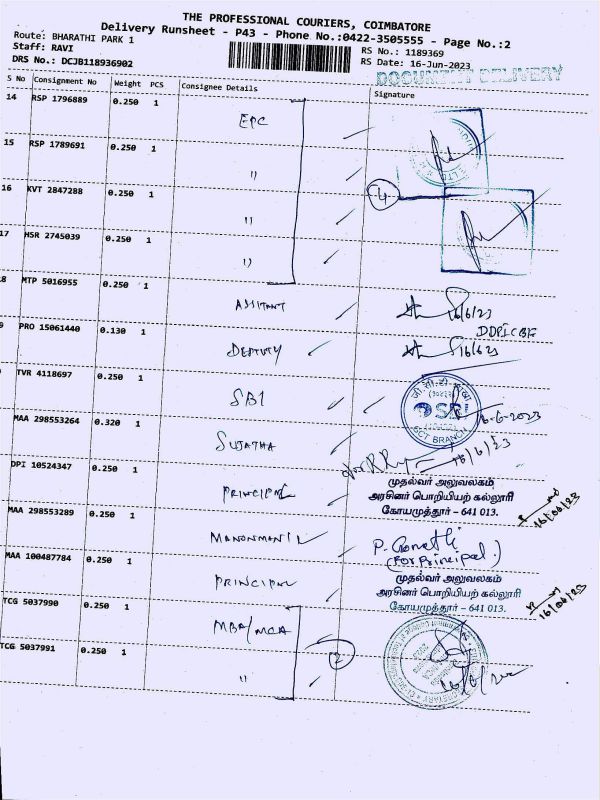 THE PROFESSIONAL COURIERS, COIMBATORE
Delivery Runsheet - P43 - Phone No.:0422-3505555 - Page No.:2
Route: BHARATHI PARK 1
RS No.: 1189369
Staff: RAVI
RS Date: 16-Jun-2023
DRS No.: DCJB118936902
DOCUMENT DELIVERY
S No Consignment No Weight PCS Consignee Details Signature
14 RSP 1796889 0.250 1 EPC
15 RSP 1789691 0.250 1 "
16 KVT 2847288 0.250 1 " 4
17 HSR 2745039 0.250 1 "
8 MTP 5016955 0.250 1 ASSITANT 16/6/23
DDPICBE
9 PRO 15061440 0.130 1 DEPTUTY 16/6/23
TVR 4118697 0.250 1 SBI SBI 6-6-2023
GCT BRANCH
MAA 298553264 0.320 1 SUJATHA 16/6/23
DPI 10524347 0.250 1 PRINCIPAL முதல்வர் அலுவலகம்
அரசினர் பொறியியற் கல்லூரி
கோயமுத்தூர் - 641 013.
16/06/23
MAA 298553289 0.250 1 MANONMANI P. Gomathi
(For principal.)
MAA 100487784 0.250 1 PRINCIPAL முதல்வர் அலுவலகம்
அரசினர் பொறியியற் கல்லூரி
கோயமுத்தூர் - 641 013.
16/06/23
TCG 5037990 0.250 1 MBA/MCA
TCG 5037991 0.250 1 " 2